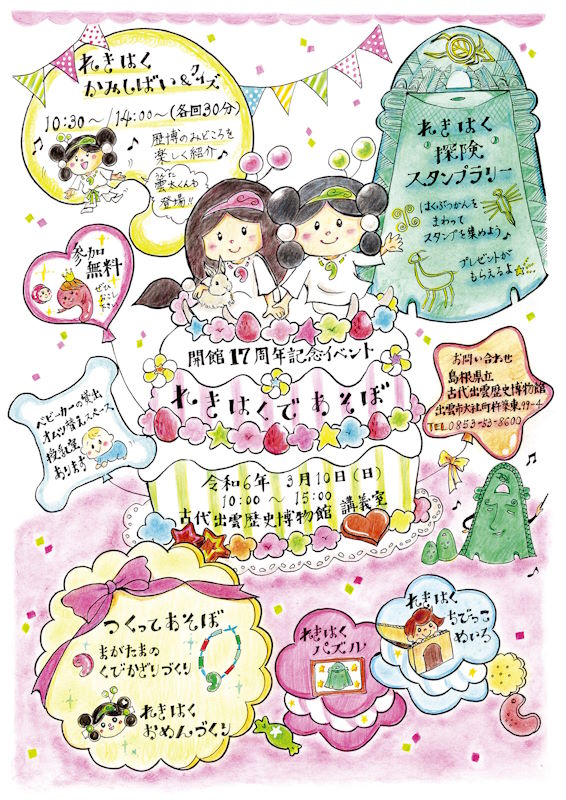 れきはく
かみしばい&クイズ
10:30〜/14:00〜(各回30分)
歴博のみどころを
楽しく紹介♪
雲太くんも
うんた
登場!!
れきはく
探険
スタンプラリー
はくぶつかんを
まわって
スタンプを集めよう♪
プレゼントが
もらえるよ
参加
無料
開館17周年記念イベント
れきはくであそぼ
令和6年 3月10日(日)
10:00 〜 15:00
古代出雲歴史博物館 講義室
お問い合わせ
島根県立
古代出雲歴史博物館
出雲市大社町杵築東99-4
TEL0853-53-8600
ベビーカーの貸出
オムツ替えスペース
授乳室
あります
つくってあそぼ
まがたまの
くびかざりづくり
れきはく
おめんづくり
れきはく
パズル
れきはく
ちびっこ
めいろ